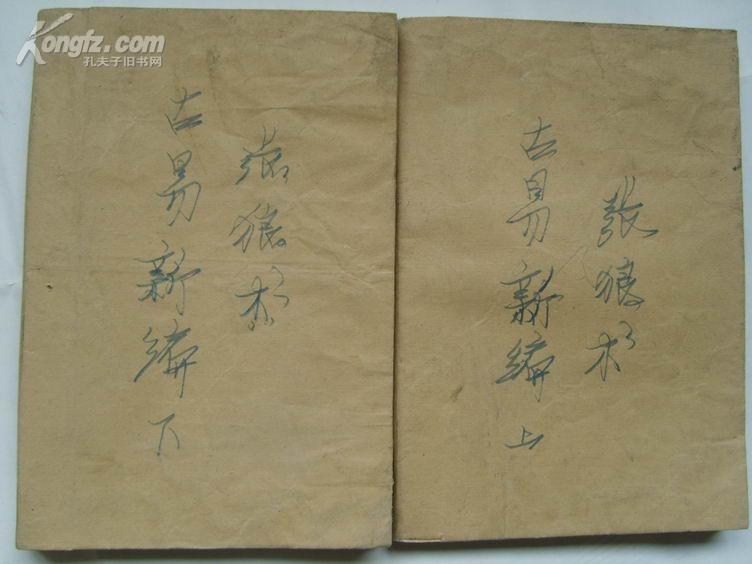 Kongfz.com
孔夫子旧书网
張狼杉
古易新編 下
張狼杉
古易新編 上